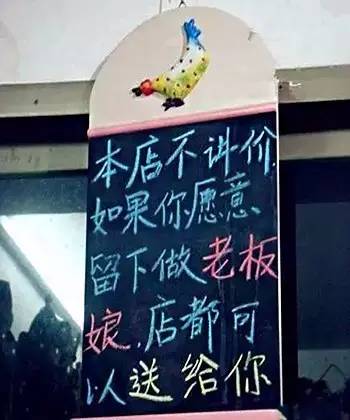 本店不讲价.
如果你愿意
留下做老板
娘.店都可
以送给你